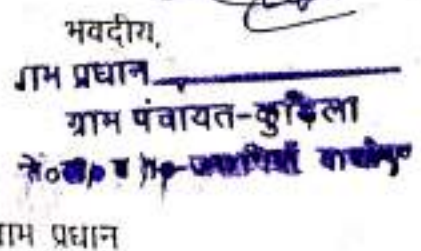 भवदीय,
ग्राम प्रधान
ग्राम पंचायत-कुड़िला
ग्राम प्रधान